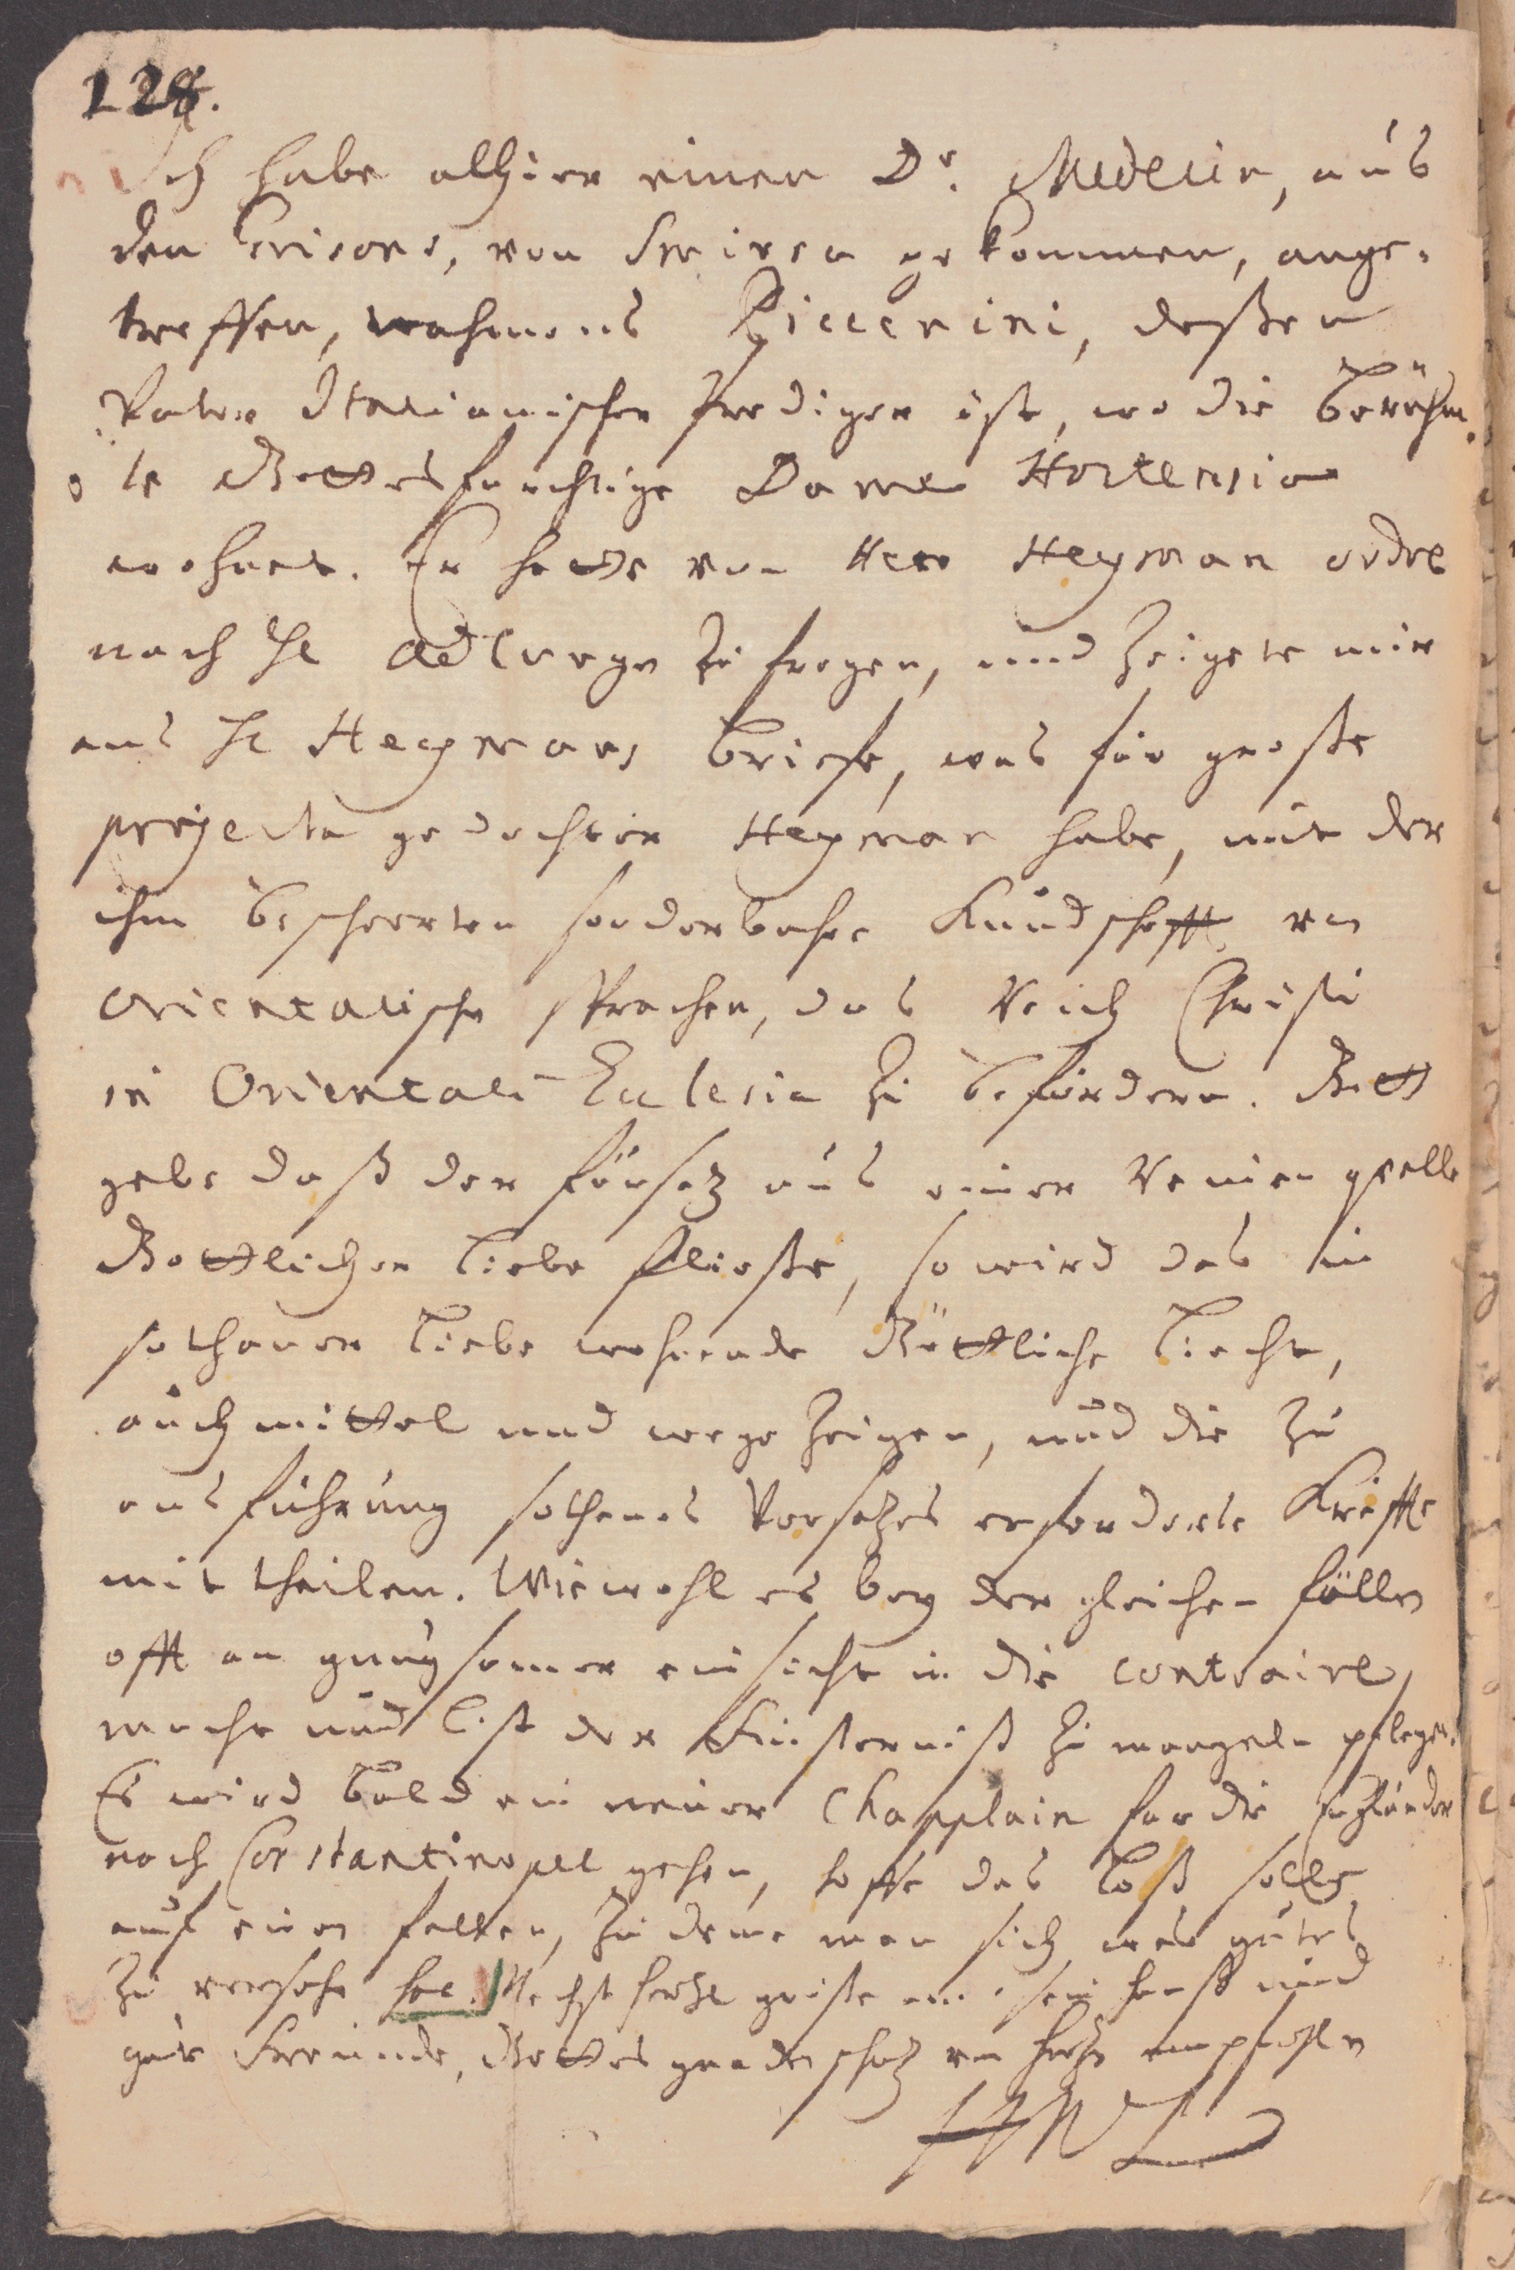 128.
Ich habe alhier einen Dr. Medecin, aus
den Grisons, von Smirna gekommen, ange-
troffen, nahmens Piccenini, deßen
Vater Italiänischer Prediger ist, wo die berühm-
te Gottesfürchtige Dame Hortensia
wohnet. Er hatte von Herr Heyman ordre
nach H. zu fragen, und zeigete mir
aus H Heymans briefe, was für große
projecta gedachter Heyman habe, mit der
ihm bescherten sonderbahre Kundschafft von
orientalische sprachen, das Reich Christi
in Orientali Ecclesia zu befördern. Gott
gebe daß der fürsatz aus einer Reinen qvelle
Göttlicher liebe fließe, so wird das in
sothaner liebe wohnende Göttliche liecht,
auch mittel und wege zeigen, und die zu
ausführung sothanes Vorsatzes erforderte Kräffte
mit theilen. Wiewohl es bey der gleichen fällen
offt an gnugsamer einsicht in die contraire
macht und list der Finsterniß zu mangeln pfleget.
Es wird bald ein neuer Chapplain für die Engländer
nach Constantinopel gehen, hoffe das loß solle
auf einen fallen, zu deme man sich was gutes
zu versehe hat. Nechst hertzl grüße an sein hauß und
gute Freunde, Gottes gnadenschutz von hertzen empfohlen
HWL